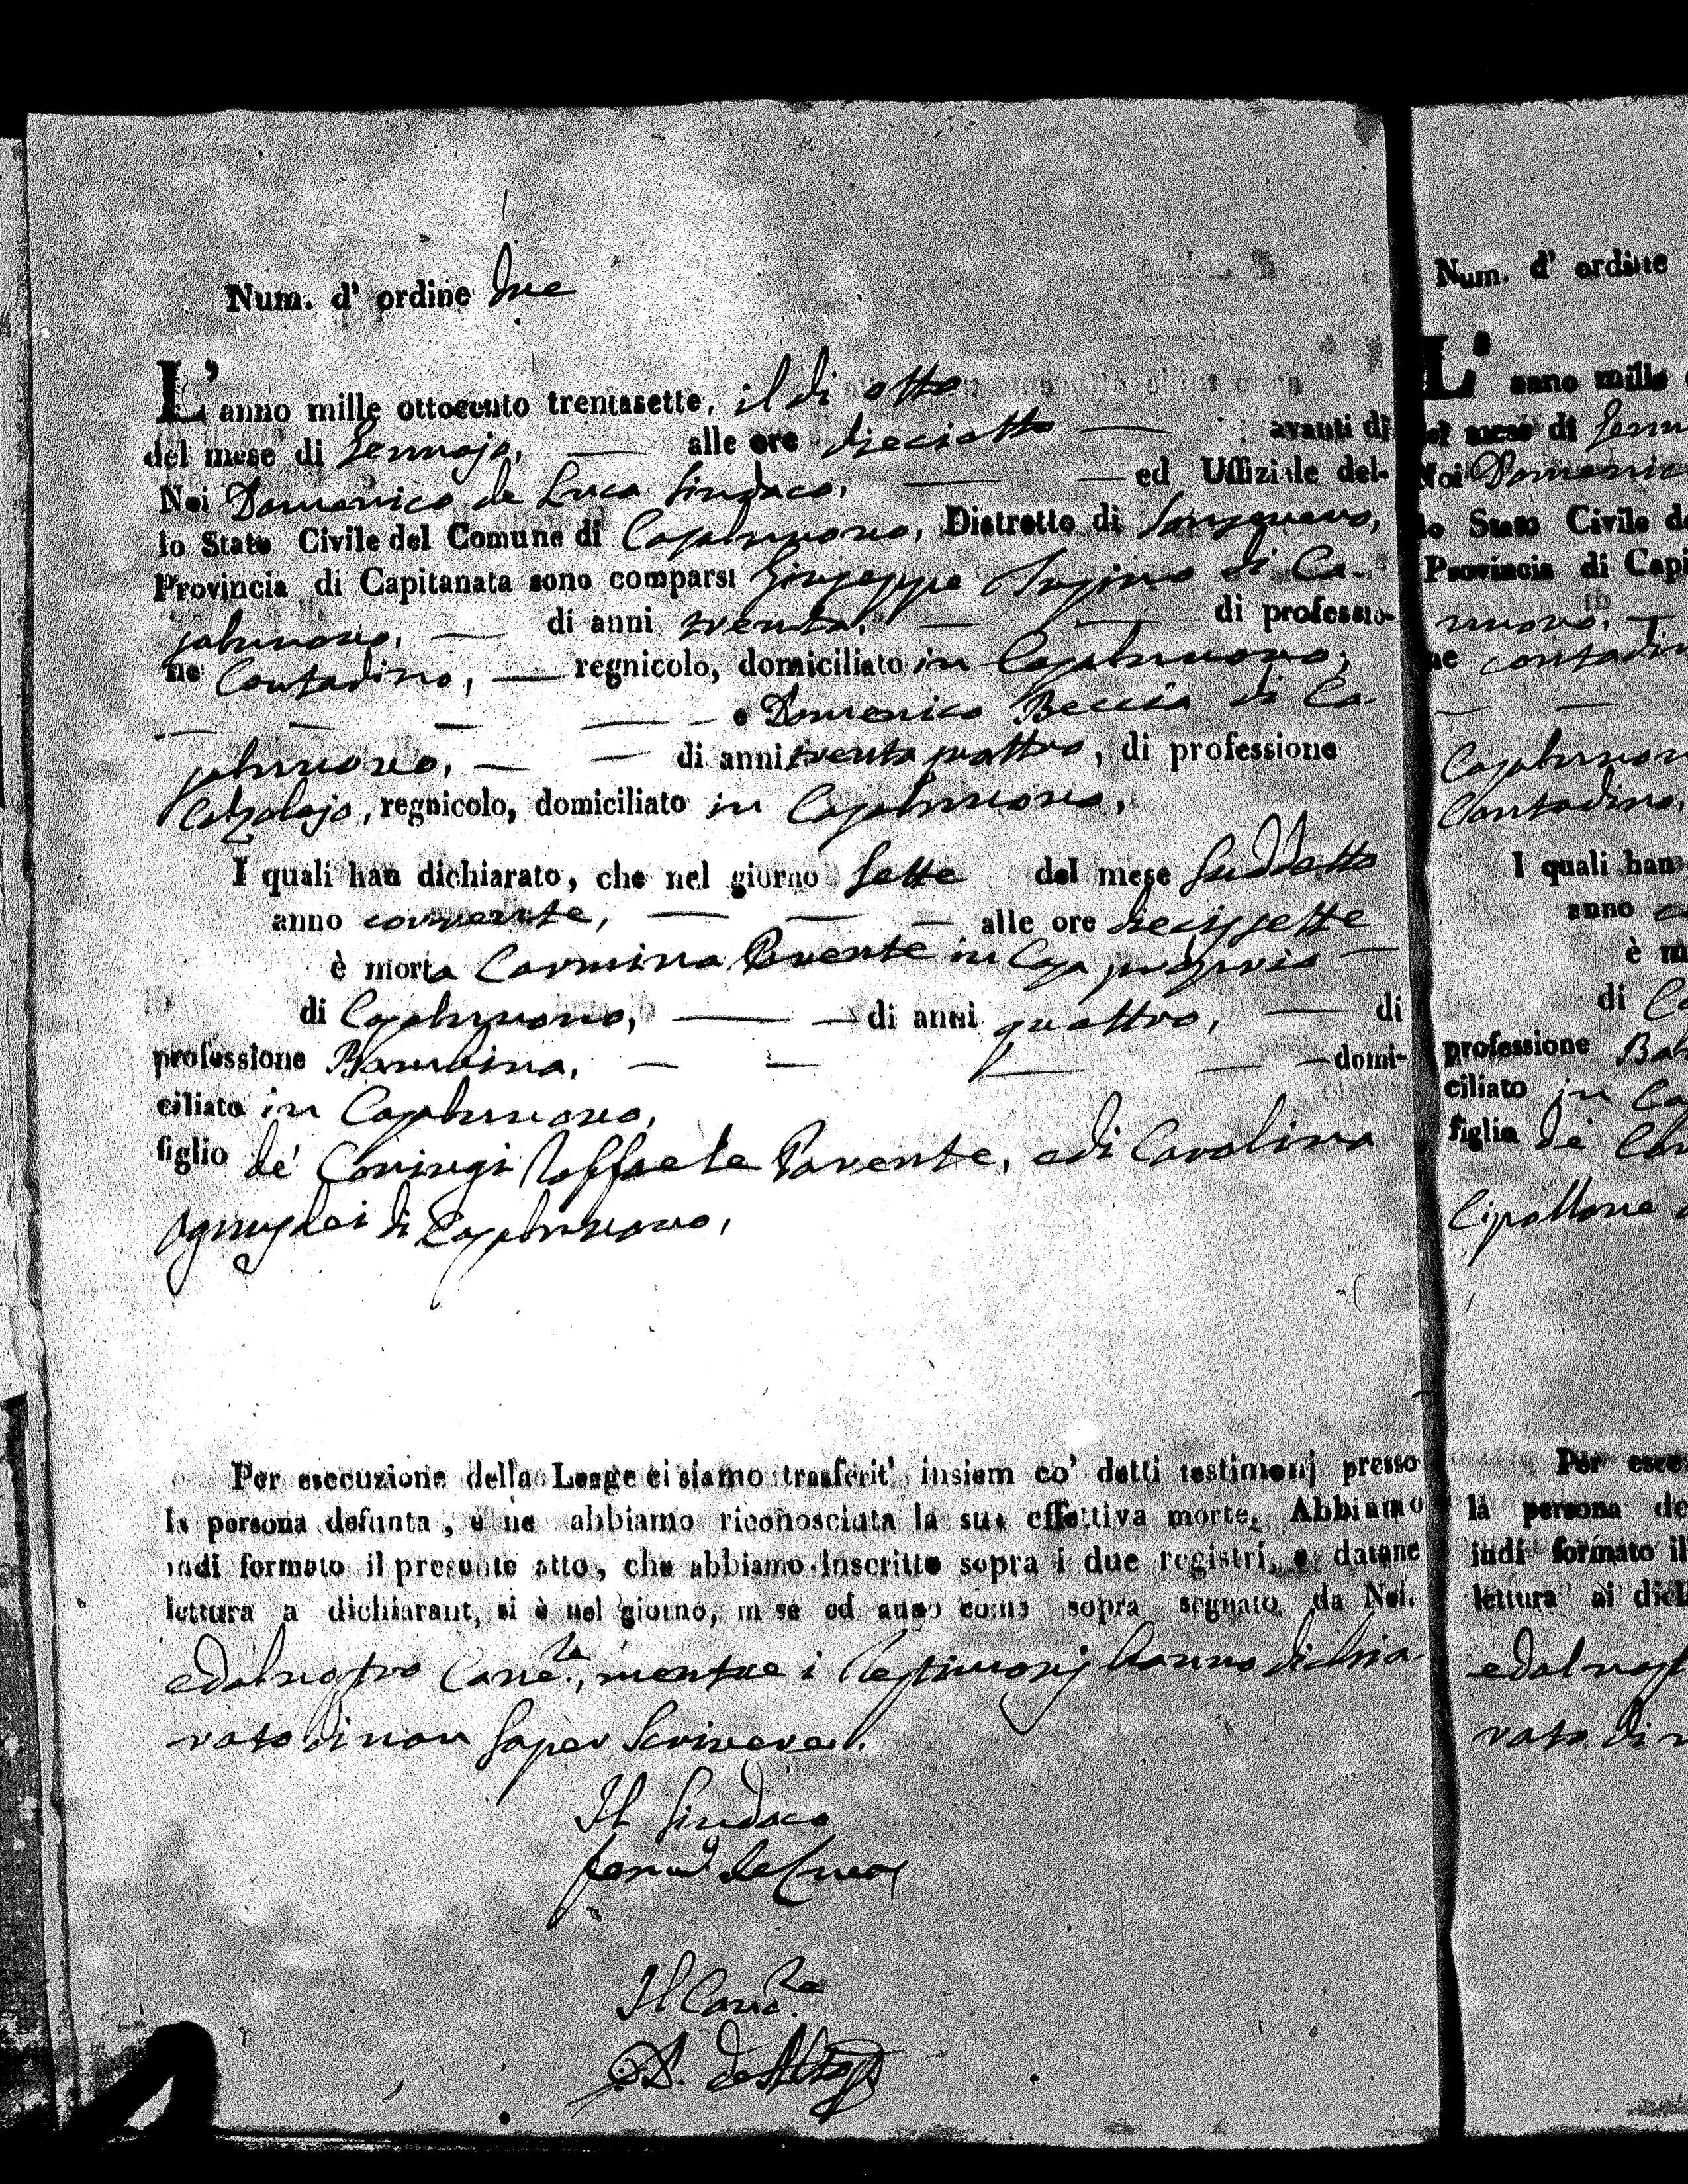 Num. d' ordine due
L' anno mille ottocento trentasette, il di otto
del mese di Gennajo, alle ore dieciotto avanti di
Noi Domenico de Luca Sindaco, ed Uffiziale del-
lo Stato Civile del Comune di Casalnuovo, Distretto di Sansevero,
Provincia di Capitanata sono comparsi Giuseppe di Ca-
salnuovo, di anni trenta, di professio-
ne Contadino, regnicolo, domiciliato in Casalnuovo,
e Domenico Beccia di Ca-
salnuovo, di anni trenta quattro, di professione
Calzolajo, regnicolo, domiciliato in Casalnuovo,
I quali han dichiarato, che nel giorno sette del mese suddetto
anno corrente, alle ore diecissette
è morta Carmina Parente in Casa propria
di Casalnuovo, di anni quattro, di
professione Bambina, domi-
ciliato in Casalnuovo,
figlio de' Coniugi Raffaele Parente, e di Carolina
di Casalnuovo,
Per esecuzione della Legge ci siamo trasferit' insiem co' detti testimonj presso
la persona defunta, e ne abbiamo riconosciuta la sua effettiva morte. Abbiamo
indi formato il presente atto, che abbiamo inscritto sopra i due registri, e datane
lettura a dichiarant, si è nel giorno, m se ed anno come sopra segnato da Noi.
e dal nostro Canc.re, mentre i Testimonj hanno dichia-
rato di non saper scrivere.
Il Sindaco
de Luca
Il Canc.re
Num. d' ordine
L' anno mille
del mese di Genn
Noi Domenic
lo Stato Civile d
Provincia di Capi
nuovo,
ne contadin
Casalnuov
Contadino,
I quali han
anno
è m
di Ca
professione Ba
ciliato in Ca
figlio de' Con
Cipollone
Per esec
la persona de
indi formato il
lettura ai dich
e dal nost
rato di n